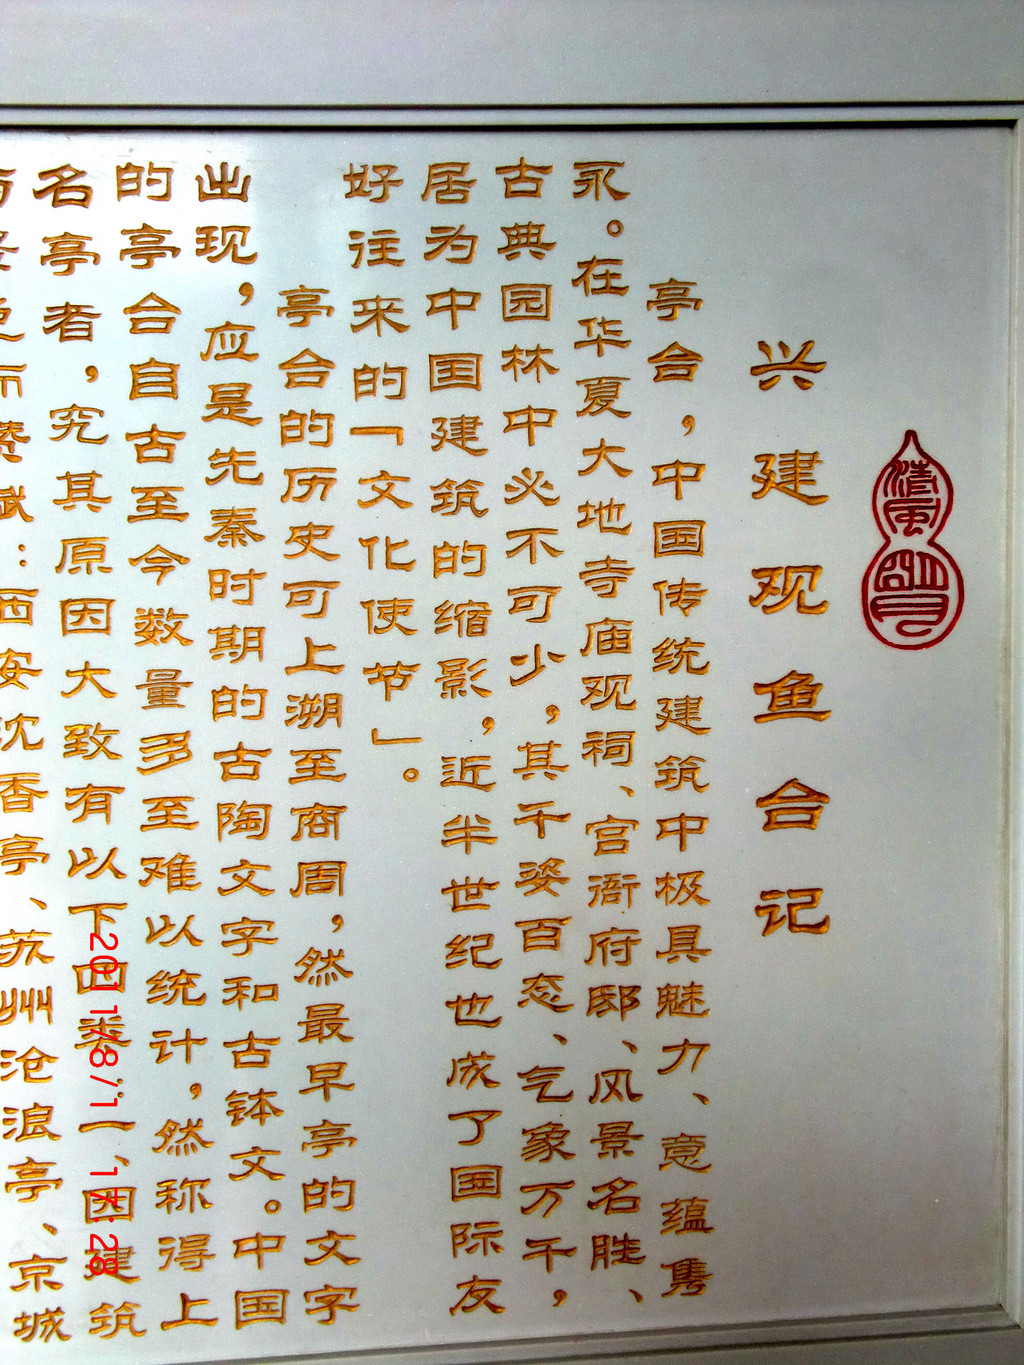 清风明月
兴建观鱼台记
亭台，中国传统建筑中极具魅力、意蕴隽
永。在华夏大地寺庙观祠、宫衙府邸、风景名胜、
古典园林中必不可少，其千姿百态、气象万千，
居为中国建筑的缩影，近半世纪也成了国际友
好往来的「文化使节」。
亭台的历史可上溯至商周，然最早亭的文字
出现，应是先秦时期的古陶文字和古钵文。中国
的亭台自古至今数量多至难以统计，然称得上
名亭者，究其原因大致有以下四类：一、因建筑
而赞赋：西安沈香亭、苏州沧浪亭、京城
2011/8/11 17:28